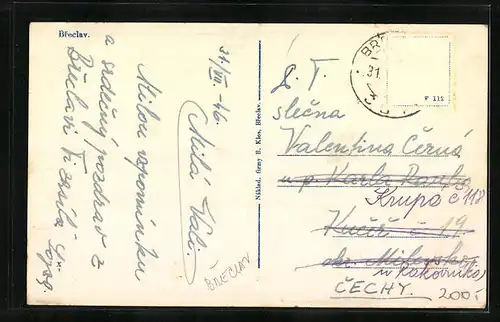 Břeclav.
31/VII-46.
Milá Vali.
Milou vzpomínku
a srdečný pozdrav z
Břeclavi Ti zasílá
BŘECLAV
Náklad. firmy B. Klos, Břeclav.
BŘE
31.
F 112
slečna
Valentina Černá
u p. Karla
Krupa č 118
Kučíř č 19.
okr. Milevsko
u Rakovníka
ČECHY.
200,-